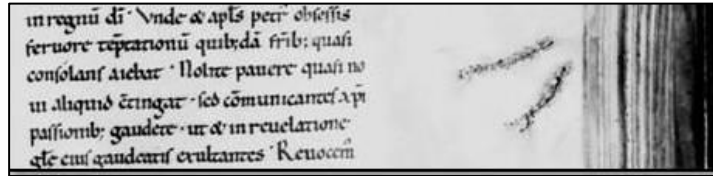 in regnū dī · Vnde & apl̄s petr᷒ obsessis
feruore tēptationū quib;dā fr̄ib; quasi
consolans aiebat · Nolite pauere quasi no
ui aliquid c̄tingat · sed cōmunicantes xp̄i
passionib; gaudete · ut & in reuelatione
gl̄e eius gaudeatis exultantes · Reuocem᷒